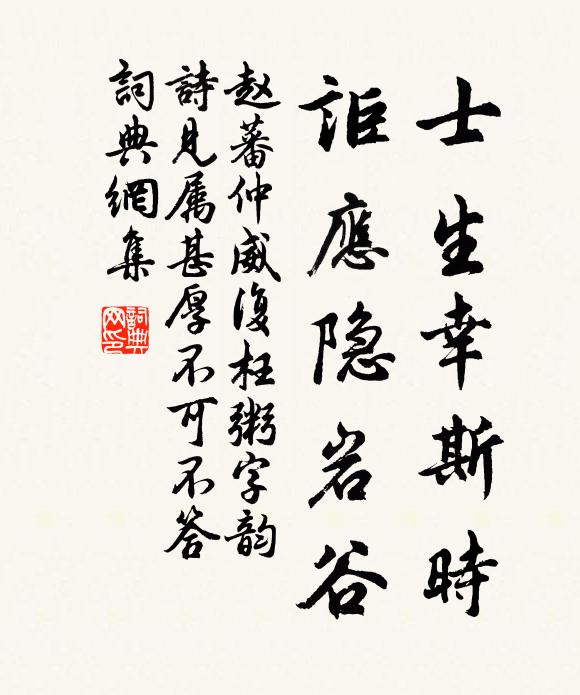 士生幸斯時
詎應隐岩谷
赵蕃仲威復枉粥字韵
詩見属甚厚不可不答
詞典網集
詞典
网印